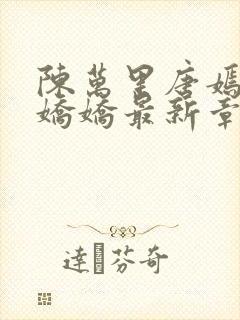 陳萬里唐嫣
嬌嬌最新章
達芬奇